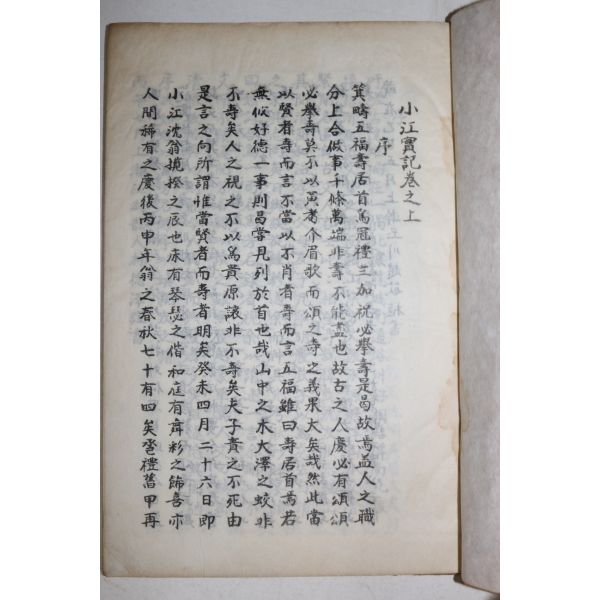 小江實記卷之上
序
箕疇五福壽居首焉冠禮三加祝必擧壽是曷故焉益人之職
分上合做事千條萬端非壽不能盡也故古之人慶必有頌頌
必擧壽莫不以黃耉介眉歌而頌之壽之義果大矣哉然此當
以賢者壽而言不當以不肖者壽而言五福雖曰壽居首焉若
無攸好德一事則曷嘗見列於首也哉山中之木大澤之蛟非
不壽矣人之視之不以爲貴原讓非不壽矣夫子責之不死由
是言之向所謂惟當賢者而壽者明矣癸未四月二十六日即
小江沈翁攬揆之辰也床有琴瑟之偕和庭有舞彩之餙喜亦
人間稀有之慶後丙申年翁之春秋七十有四矣巹禮舊甲再